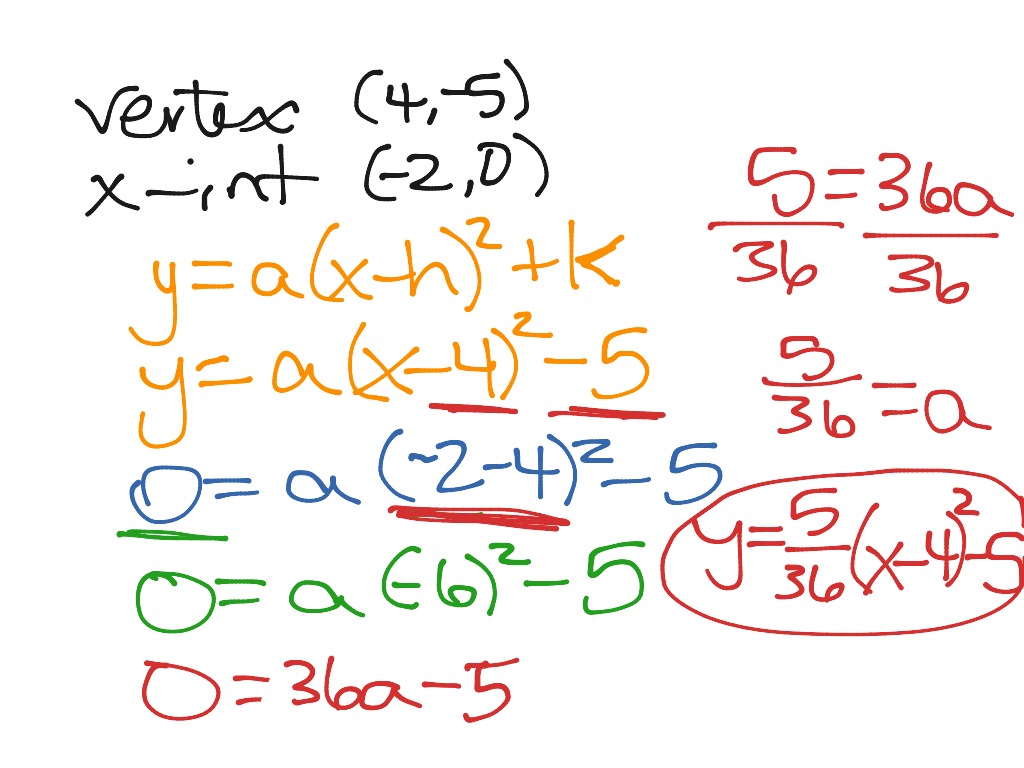 vertex (4,-5)
x-int (-2,0)
y=a(x-h)²+k
y=a(x-4)²-5
0=a(-2-4)²-5
0=a(-6)²-5
0=36a-5
5/36=36a/36
5/36=a
y=5/36(x-4)²-5